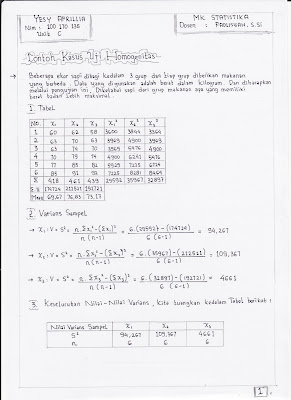 YESY APRILLIA
Nim : 100 170 136
Unit C
MK. STATISTIKA
Dosen : FADLISYAH, S.Si
Contoh Kasus Uji Homogenitas
→ Beberapa ekor sapi dibagi kedalam 3 grup dan tiap grup diberikan makanan
yang berbeda. Data yang digunakan adalah berat dalam kilogram. Dan diharapkan
melalui pengujian ini, diketahui sapi dari grup makanan apa yang memiliki
berat badan lebih maksimal.
1. Tabel
No. X₁ X₂ X₃ X₁² X₂² X₃²
1 60 62 58 3600 3844 3364
2 63 70 63 3969 4900 3969
3 63 74 70 3969 5476 4900
4 70 79 74 4900 6241 5476
5 77 85 82 5929 7225 6724
6 85 91 92 7225 8281 8464
Σ 418 461 439 29592 35967 32897
174724 212521 192721
Mean 69,67 76,83 73,17
2. Varians Sampel
→ X₁ : V = S² = n . Σx₁² - (Σx₁)² / n (n-1) = 6 . (29592) - (174724) / 6 (6-1) = 94,267
→ X₂ : V = S² = n . Σx₂² - (Σx₂)² / n (n-1) = 6 . (35967) - (212521) / 6 (6-1) = 109,367
X₃ : V = S² = n . Σx₃² - (Σx₃)² / n (n-1) = 6 . (32897) - (192721) / 6 (6-1)
3. Keseluruhan Nilai-Nilai Varians, kita tuangkan kedalam Tabel berikut :
Nilai Varians Sampel X₁ X₂ X₃
S² 94,267 109,367
n 6 6 6
1